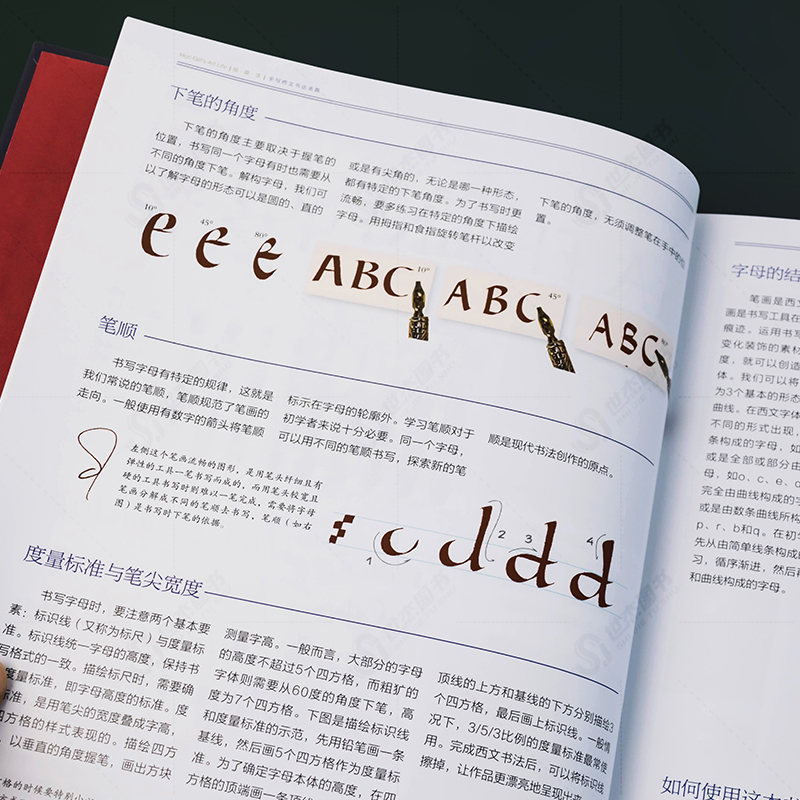 手写西文书法圣典
下笔的角度
下笔的角度主要取决于握笔的
位置,书写同一个字母有时也需要从
不同的角度下笔。解构字母,我们可
以了解字母的形态可以是圆的、直的
或是有尖角的,无论是哪一种形态,
都有特定的下笔角度。为了书写时更
流畅,要多练习在特定的角度下描绘
字母。用拇指和食指旋转笔杆以改变
下笔的角度,无须调整笔在手中的位
置。
10° 45° 80°
e e e
ABC 10°
ABC 45°
ABC
笔顺
书写字母有特定的规律,这就是
我们常说的笔顺,笔顺规范了笔画的
走向。一般使用有数字的箭头将笔顺
标示在字母的轮廓外。学习笔顺对于
初学者来说十分必要。同一个字母,
可以用不同的笔顺书写,探索新的笔
顺是现代书法创作的原点。
左侧这个笔画流畅的图形,是用笔头纤细且有
弹性的工具一笔书写而成的,而用笔头较宽且
硬的工具书写时则难以一笔完成,需要将字母
笔画分解成不同的笔顺去书写,笔顺(如右
图)是书写时下笔的依据。
1 2 3 4
d d d
度量标准与笔尖宽度
书写字母时,要注意两个基本要
素:标识线(又称为标尺)与度量标
准。标识线统一字母的高度,保持书
写格式的一致。描绘标尺时,需要确
度量标准,即字母高度的标准。度
标准,是用笔尖的宽度叠成字高,
四方格的样式表现的。描绘四方
,以垂直的角度握笔,画出方块
测量字高。一般而言,大部分的字母
的高度不超过5个四方格,而粗犷的
字体则需要从60度的角度下笔,高
度为7个四方格。下图是描绘标识线
和度量标准的示范,先用铅笔画一条
基线,然后画5个四方格作为度量标
准。为了确定字母本体的高度,在四
方格的顶端画一条顶线
顶线的上方和基线的下方分别描绘3
个四方格,最后画上标识线。一般情
况下,3/5/3比例的度量标准最常使
用。完成西文书法后,可以将标识线
擦掉,让作品更漂亮地呈现出来
格的时候要特别小
字母的结
笔画是西
画是书写工具在
痕迹。运用书写
变化装饰的素材
度,就可以创造
体。我们可以将
为3个基本的形态
曲线。在西文字体
不同的形式出现,
条构成的字母,如
或是全部或部分由
母,如o、c、e、d
完全由曲线构成的字
或是由数条曲线所构
p、r、b和q。在初学
先从由简单线条构成
习,循序渐进,然后再
和曲线构成的字母。
如何使用这本书